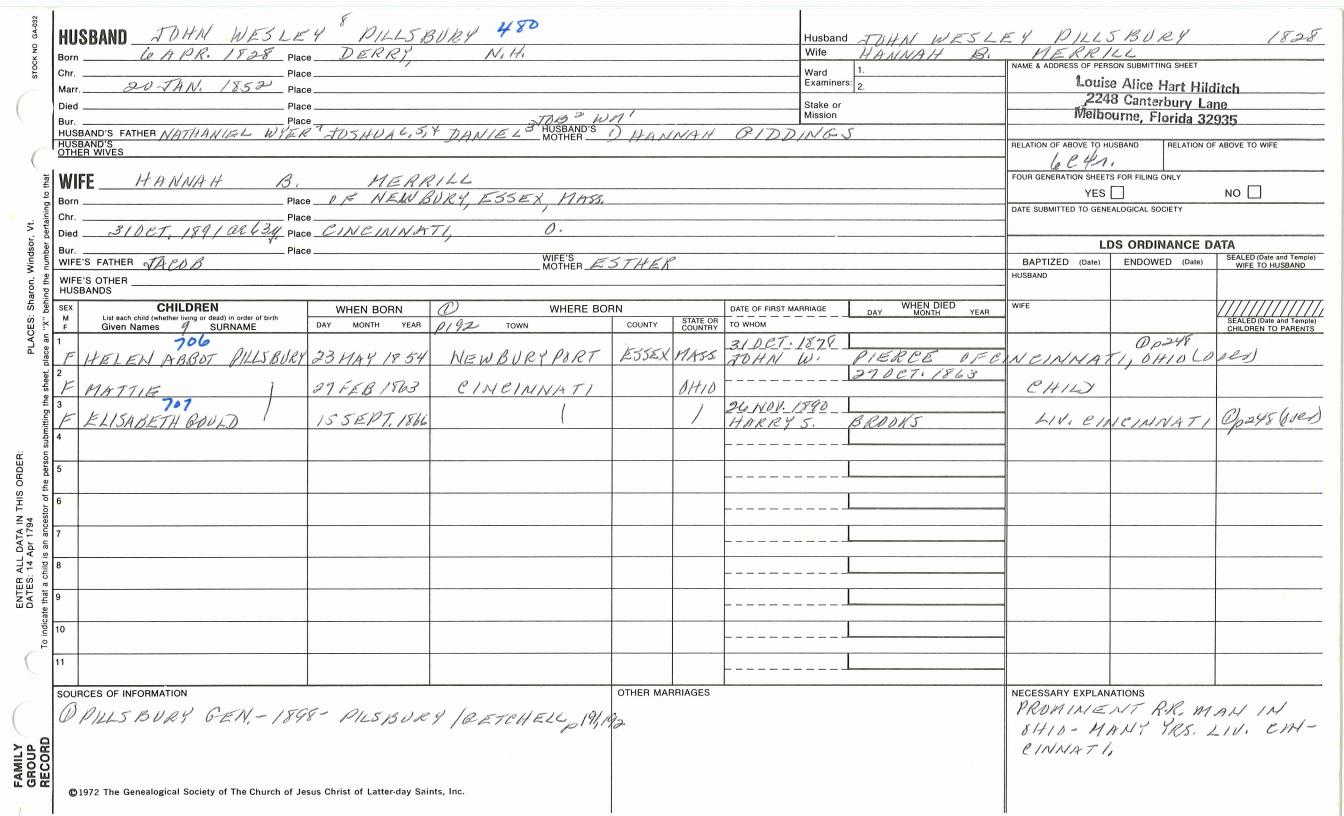 STOCK NO GA-032
HUSBAND JOHN WESLEY 8 PILLSBURY 480
Born 6 APR. 1828 Place DERRY, N.H.
Chr. Place
Marr. 20 JAN. 1852 Place
Died Place
Bur. Place
HUSBAND'S FATHER NATHANIEL WYER 7 JOSHUA 6,5,4 DANIEL 3 JOB 2 WM 1 HUSBAND'S MOTHER 1) HANNAH GIDDINGS
HUSBAND'S OTHER WIVES
Husband JOHN WESLEY PILLSBURY 1828
Wife HANNAH B. MERRILL
Ward Examiners: 1.
2.
Stake or Mission
NAME & ADDRESS OF PERSON SUBMITTING SHEET
Louise Alice Hart Hilditch
2248 Canterbury Lane
Melbourne, Florida 32935
RELATION OF ABOVE TO HUSBAND RELATION OF ABOVE TO WIFE
6C4r.
FOUR GENERATION SHEETS FOR FILING ONLY
YES NO
DATE SUBMITTED TO GENEALOGICAL SOCIETY
WIFE HANNAH B. MERRILL
Born Place OF NEWBURY, ESSEX, MASS.
Chr. Place
Died 31 OCT. 1891 ae 63y. Place CINCINNATI, O.
Bur. Place
WIFE'S FATHER JACOB WIFE'S MOTHER ESTHER
WIFE'S OTHER HUSBANDS
LDS ORDINANCE DATA
BAPTIZED (Date) ENDOWED (Date) SEALED (Date and Temple) WIFE TO HUSBAND
HUSBAND
WIFE
SEALED (Date and Temple) CHILDREN TO PARENTS
SEX M F
CHILDREN
List each child (whether living or dead) in order of birth
Given Names 9 SURNAME
WHEN BORN
DAY MONTH YEAR
① p192
WHERE BORN
TOWN COUNTY STATE OR COUNTRY
DATE OF FIRST MARRIAGE
TO WHOM
WHEN DIED
DAY MONTH YEAR
1 706 31 OCT. 1878 ① p248
F HELEN ABBOT PILLSBURY 23 MAY 1854 NEWBURYPORT ESSEX MASS JOHN W. PIERCE OF CINCINNATI, OHIO (2 ves)
2 27 OCT. 1863
F MATTIE 27 FEB 1863 CINCINNATI OHIO CHILD
3 707 26 NOV. 1890
F ELISABETH GOULD 15 SEPT. 1866 HARRY S. BROOKS LIV. CINCINNATI ① p248
4
5
6
7
8
9
10
11
SOURCES OF INFORMATION
① PILLSBURY GEN. - 1898 - PILSBURY / GETCHELL p 191, 192
OTHER MARRIAGES
NECESSARY EXPLANATIONS
PROMINENT R.R. MAN IN
OHIO - MANY YRS. LIV. CIN-
CINNATI.
©1972 The Genealogical Society of The Church of Jesus Christ of Latter-day Saints, Inc.
FAMILY GROUP RECORD
ENTER ALL DATA IN THIS ORDER:
DATES: 14 Apr 1794
PLACES: Sharon, Windsor, Vt.
To indicate that a child is an ancestor of the person submitting the sheet, place an "X" behind the number pertaining to that